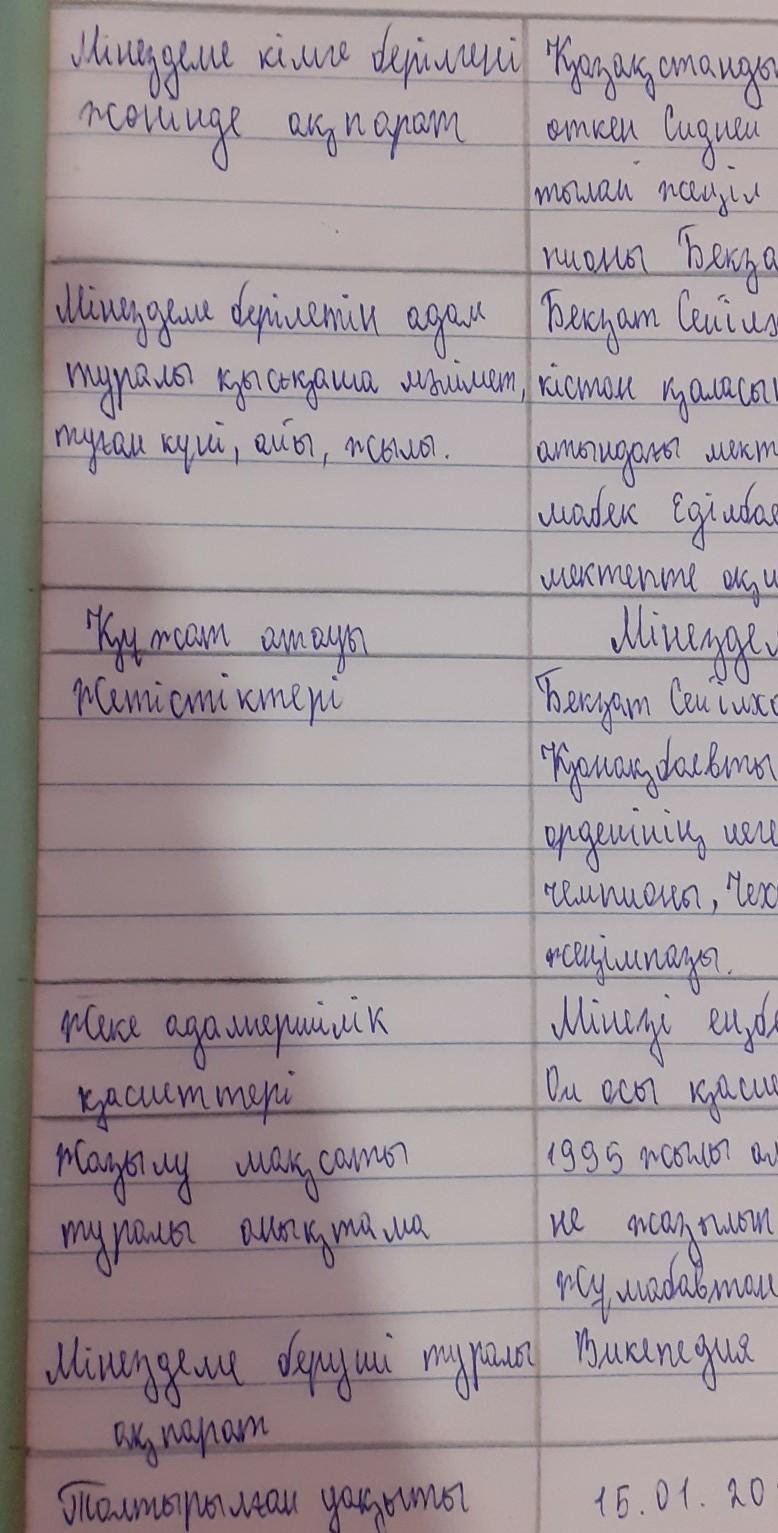 Мінездеме кімге берілгені
жөнінде ақпарат
Қазақстанды
өткен Сидней
тылай жеңіл
пионы Бекза
Мінездеме берілетін адам
туралы қысқаша мәлімет,
туған күні, айы, жылы.
Бекзат Сейілх
кістон қаласы
атындағы мект
мабек Еділбае
мектепте оқи
Құжат атауы
Мінездем
Жетістіктері
Бекзат Сейілха
Қонақбаевты
орденінің иеге
чемпионы, Чех
жеңімпазы.
Жеке адамгершілік
қасиеттері
Мінезі еңбе
Ол осы қасие
Жазылу мақсаты
туралы анықтама
1995 жылы ал
не жазылып
Жұмабаевтан
Мінездеме беруші туралы
ақпарат
Википедия
Толтырылған уақыты
15.01.20